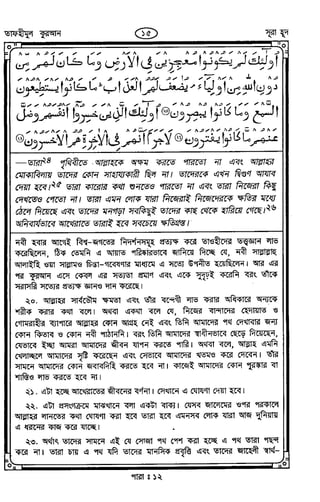 তাফহীমুল কুরআন ১৫ সূরা হূদ
أُولَٰئِكَ لَمْ يَكُونُوا مُعْجِزِينَ فِي الْأَرْضِ وَمَا كَانَ لَهُمْ مِنْ
دُونِ اللَّهِ مِنْ أَوْلِيَاءَ يُضَاعَفُ لَهُمُ الْعَذَابُ مَا كَانُوا يَسْتَطِيعُونَ
السَّمْعَ وَمَا كَانُوا يُبْصِرُونَ أُولَٰئِكَ الَّذِينَ خَسِرُوا أَنْفُسَهُمْ وَضَلَّ
عَنْهُمْ مَا كَانُوا يَفْتَرُونَ لَا جَرَمَ أَنَّهُمْ فِي الْآخِرَةِ هُمُ الْأَخْسَرُونَ
—তারা২৪ পৃথিবীতে আল্লাহকে অক্ষম করতে পারতো না এবং আল্লাহর
মোকাবিলায় তাদের কোন সাহায্যকারী ছিল না। তাদেরকে এখন দ্বিগুণ আযাব
দেয়া হবে।২৫ তারা কারোর কথা শুনতেও পারতো না এবং তারা নিজেরা কিছু
দেখতেও পেতো না। তারা এমন লোক যারা নিজেরাই নিজেদেরকে ক্ষতির মধ্যে
ঠেলে দিয়েছে এবং তাদের মনগড়া সবকিছুই তাদের কাছ থেকে হারিয়ে গেছে।২৬
অনিবার্যভাবে আখেরাতে তারাই হবে সবচেয়ে ক্ষতিগ্রস্ত।
নবী হবার আগেই বিশ্ব-জগতের নিদর্শনসমূহ প্রত্যক্ষ করে তাওহীদের তত্ত্বজ্ঞান লাভ
করেছিলেন, ঠিক তেমনি এ আয়াত পরিষ্কারভাবে জানিয়ে দিচ্ছে যে, নবী সাল্লাল্লাহু
আলাইহি ওয়া সাল্লামও চিন্তা-গবেষণার মাধ্যমে এ সত্যে উপনীত হয়েছিলেন। আর এর
পর কুরআন এসে কেবল এর সত্যতা প্রমাণ এবং একে সুদৃঢ়ই করেনি বরং তাঁকে
সরাসরি সত্যের প্রত্যক্ষ জ্ঞানও দান করেছে।
২০. আল্লাহর সার্বভৌম ক্ষমতা এবং তাঁর বন্দেগী লাভ করার অধিকারে অন্যকে
শরীক করার কথা বলে। অথবা একথা বলে যে, নিজের বান্দাদের হেদায়াত ও
গোমরাহীর ব্যাপারে আল্লাহর কোন আগ্রহ নেই এবং তিনি আমাদের পথ দেখাবার জন্য
কোন কিতাব ও কোন নবী পাঠাননি। বরং তিনি আমাদের স্বাধীনভাবে ছেড়ে দিয়েছেন,
যেভাবে ইচ্ছা আমরা আমাদের জীবন যাপন করতে পারি। অথবা বলে, আল্লাহ এমনি
খেলাচ্ছলে আমাদের সৃষ্টি করেছেন এবং সেভাবে আমাদের খতমও করে দেবেন। তাঁর
সামনে আমাদের কোন জবাবদিহি করতে হবে না। কাজেই আমাদের কোন পুরস্কার বা
শাস্তিও লাভ করতে হবে না।
২১. এটা হচ্ছে আখেরাতের জীবনের বর্ণনা। সেখানে এ ঘোষণা দেয়া হবে।
২২. এটা প্রসংগক্রমে মাঝখানে বলা একটা বাক্য। যেসব জালেমের ওপর পরকালে
আল্লাহর লানতের কথা ঘোষণা করা হবে তারা হবে এমনসব লোক যারা আজ দুনিয়ায়
এ ধরনের কাজ করে যাচ্ছে।
২৩. অর্থাৎ তাদের সামনে এই যে সোজা পথ পেশ করা হচ্ছে এ পথ তারা পছন্দ
করে না। তারা চায় এ পথ যদি তাদের মানসিক প্রবৃত্তি এবং তাদের জাহেলী স্বার্থ-
পারা : ১২